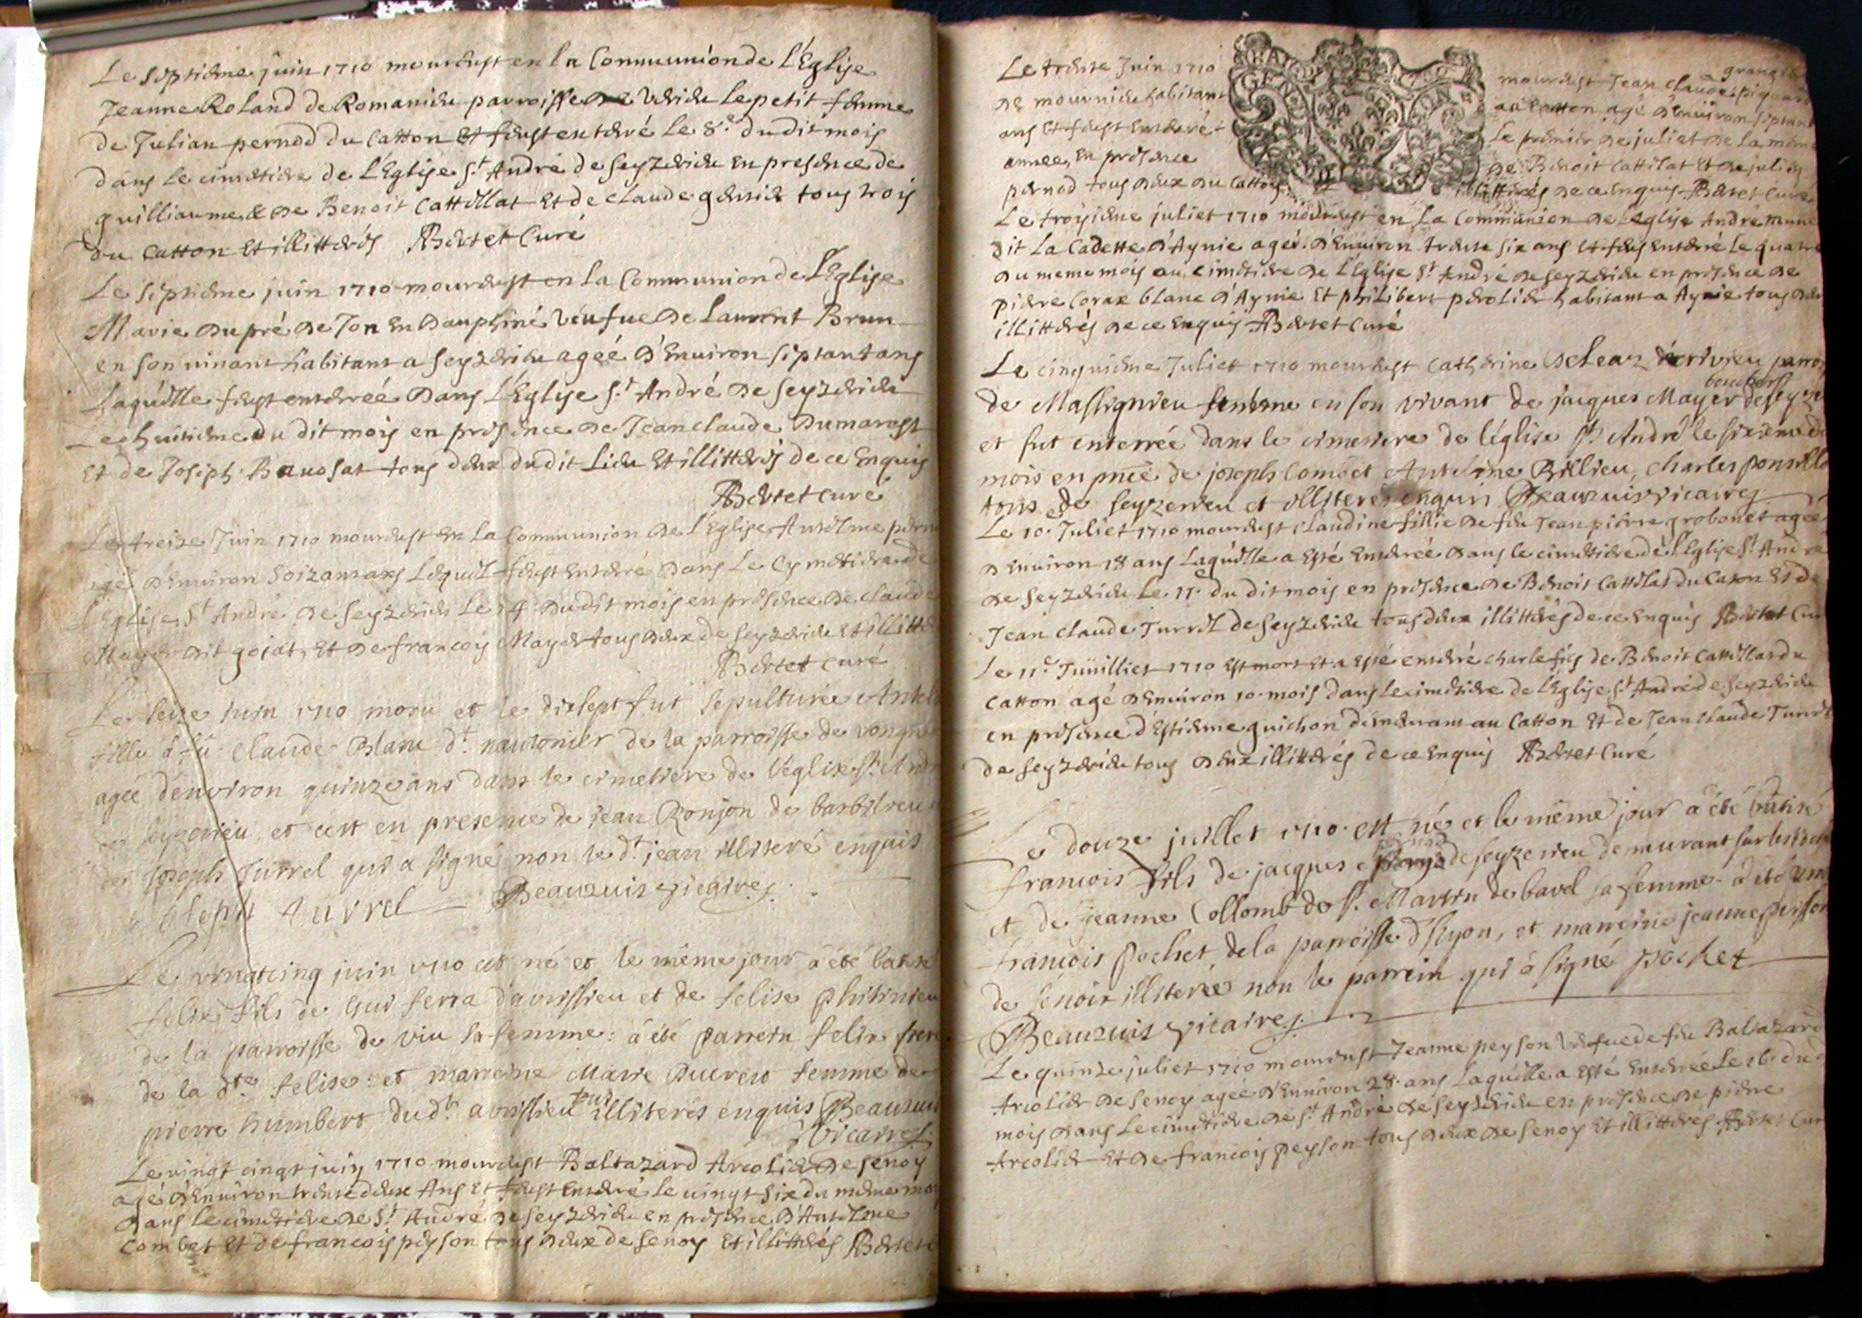 Le septieme juin 1710 mourust en la Communion de L'Eglise
Jeanne Roland de Romanieu parroisse de Virieu le petit femme
de Julian pernod du Catton et feust enterré le 8e du dit mois
dans le cimetiere de L'Eglise St André de Seyzerieu en presence de
guilliaume & de Benoit Cattillat et de claude gervier tous trois
du Catton et illitterés Bertet Curé
Le septieme juin 1710 mourust en la Communion de L'Eglise
Marie dupré de Jon en dauphiné veufue de Laurent Brun
en son vivant habitant a Seyzerieu agée d'Environ septant ans
Laquelle feust enterreé dans L'Eglise St André de Seyzerieu
Le huitieme du dit mois en presence de Jean claude Dumarest
Et de Joseph Bavosat tous deux du dit Lieu et illitterés de ce enquis
Bertet Curé
Le treize Juin 1710 mourust en la Communion de L'Eglise Antelme
agé d'Environ soizantans Lequel feust enterré dans Le Cymetiere de
L'Eglise St André de Seyzerieu Le 14 du dit mois en presence de claude
Mayer dit gojat, et de francoy Mayer tous deux de Seyzerieu et illitt
Bertet Curé
Le seize juin 1710 moru et le disept fut sepulturée
fille à fû Claude Blanc dt nautonier de la parroisse de
ageé denviron quinze ans dans le cimetiere de l'eglise St
de seyzerieu et cert en presence de jean Ronjon de barbilieu
de joseph Turrel qui a signé non le dt jean illiteré enquis
joseph turrel Beauzuis vicaire
Le vingtcinq juin 1710 est né et le même jour à été batisé
felix fils de Gui serra d'avrissieu et de felise
de la parroisse de viu sa femme: à été parrein felix frere
de la dte felise: et marreine Marie femme de
pierre humbert du dt avrissieu tous illiterés enquis Beauzuis
vicaire
Le vingt cinqt juin 1710 mourust Baltazard Arcolier de senoy
agé d'Environ trente deux Ans et feust enterré le vingt six du meme mois
dans le cimetiere de St André de Seyzerieu en presence d'Antelme
Combet Et de francois peyson tous deux de senoy et illitterés Bertet
Le trente Juin 1710 mourust Jean claude piquard grangier
de mournieu habitant au Catton agé d'Environ septant
ans et feust enterré Le premier de juliet de La meme
annee, en presence de Benoit Cattilat et de julien
pernod tous deux du Catton illitterés de ce enquis Bertet Curé
Le troysieme juliet 1710 mourust en La Communion de L'eglise Andre
dit La Cadette d'Aynie ageé d'Environ trente six ans et feus enterré Le quatre
du meme mois au cimetiere de L'Eglise St André de Seyzerieu en presence de
pierre Corax blanc d'Aynie Et philibert perolier habitant a Aynie tous deux
illitterés de ce enquis Bertet Curé
Le cinquieme Juliet 1710 mourust Catherine parroi
de Massignieu femme en son vivant de jacques Mayer de
et fut enterrée dans le cimetiere de l'église St André le sixieme du
mois en pnce de joseph Combet Antelme Billieu, Charles
tous de seyzerieu et illiteres enquis Beauzuis vicaire
Le 10. Juliet 1710 mourust claudine fillie de feu Jean pierre grobonet agée
d'Environ 18 ans Laquelle a esté enterreé dans le cimetiere de L'Eglise St André
de Seyzerieu Le 11. du dit mois en presence de Benoit Cattilat du Caton Et de
Jean claude Turrel de Seyzerieu tous deux illitterés de ce enquis Bertet Cur
Le 11e Juilliet 1710 est mort et a esté enterré charle fils de Benoit Cattillat du
Catton agé d'Environ 10. mois dans Le cimetiere de L'Eglise St André de Seyzerieu
en presence d'Estienne guichon demeurant au Catton Et de Jean claude Turrel
de Seyzerieu tous deux illitterés de ce enquis Bertet Curé
Le douze juillet 1710 est né et le même jour à été batisé
francois fils de jacques de seyzerieu demeurant sur
et de jeanne Collomb de St Martin de bavel sa femme à été
francois Pochet de la parroisse d'Lyon, et marreine jeanne
de senoix illiterée non le parrein qui à signé Pochet
Beauzuis vicaire
Le quinze juliet 1710 mourust Jeanne peyson vefue de feu Baltazard
Arcolier de senoy ageé d'Environ 28. ans Laquelle a esté enterreé Le 16. du
mois dans Le cimetiere de St André de Seyzerieu en presence de pierre
Arcolier Et de francois peyson tous deux de senoy Et illitterés Bertet Cur